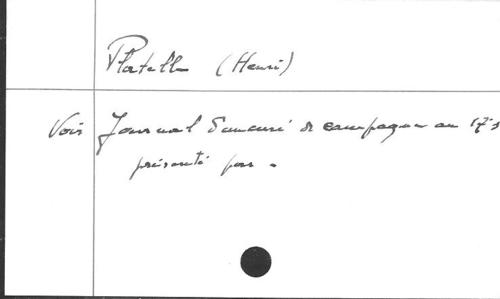 Platelle (Henri)
Voir Journal d'un curé de campagne au 17e s
présenté par -